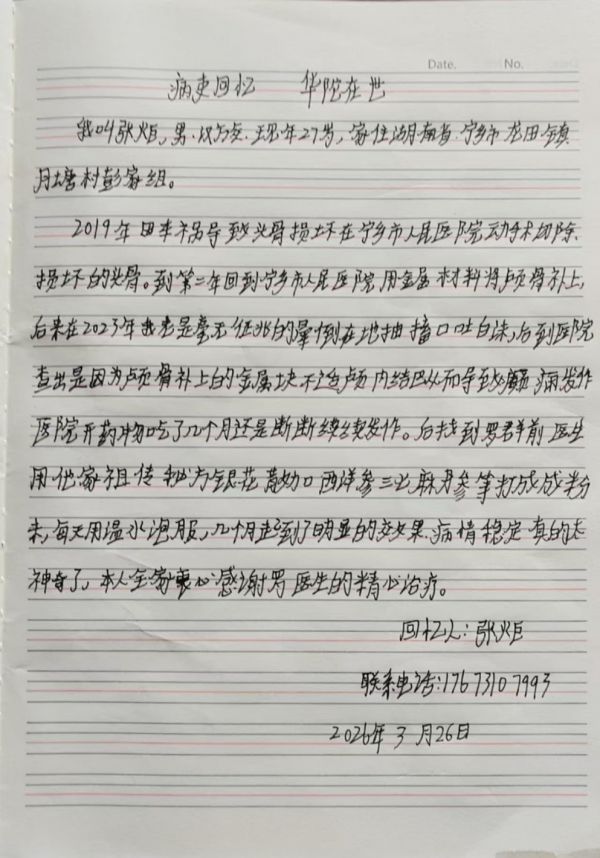 Date. No.
病史回忆 华陀在世
我叫张炬,男.汉族.现年27岁,家住湖南省.宁乡市龙田镇
月塘村彭家组。
2019年因车祸导致头骨损坏在宁乡市人民医院动手术切除
损坏的头骨。到第二年回到宁乡市人民医院用金属材料将颅骨补上,
后来在2023年我老是毫无征兆的晕倒在地抽搐口吐白沫,后到医院
查出是因为颅骨补上的金属块不适颅内结巴从而导致癫痫病发作
医院开药物吃了几个月还是断断续续发作。后找到罗群前医生
用他家祖传秘方银花 西洋参三七麻丹参等打成成粉
末,每天用温水泡服,几个月起到了明显的效果.病情稳定真的太
神奇了,本人全家衷心感谢罗医生的精心治疗。
回忆人:张炬
联系电话:17673107993
2026年3月26日